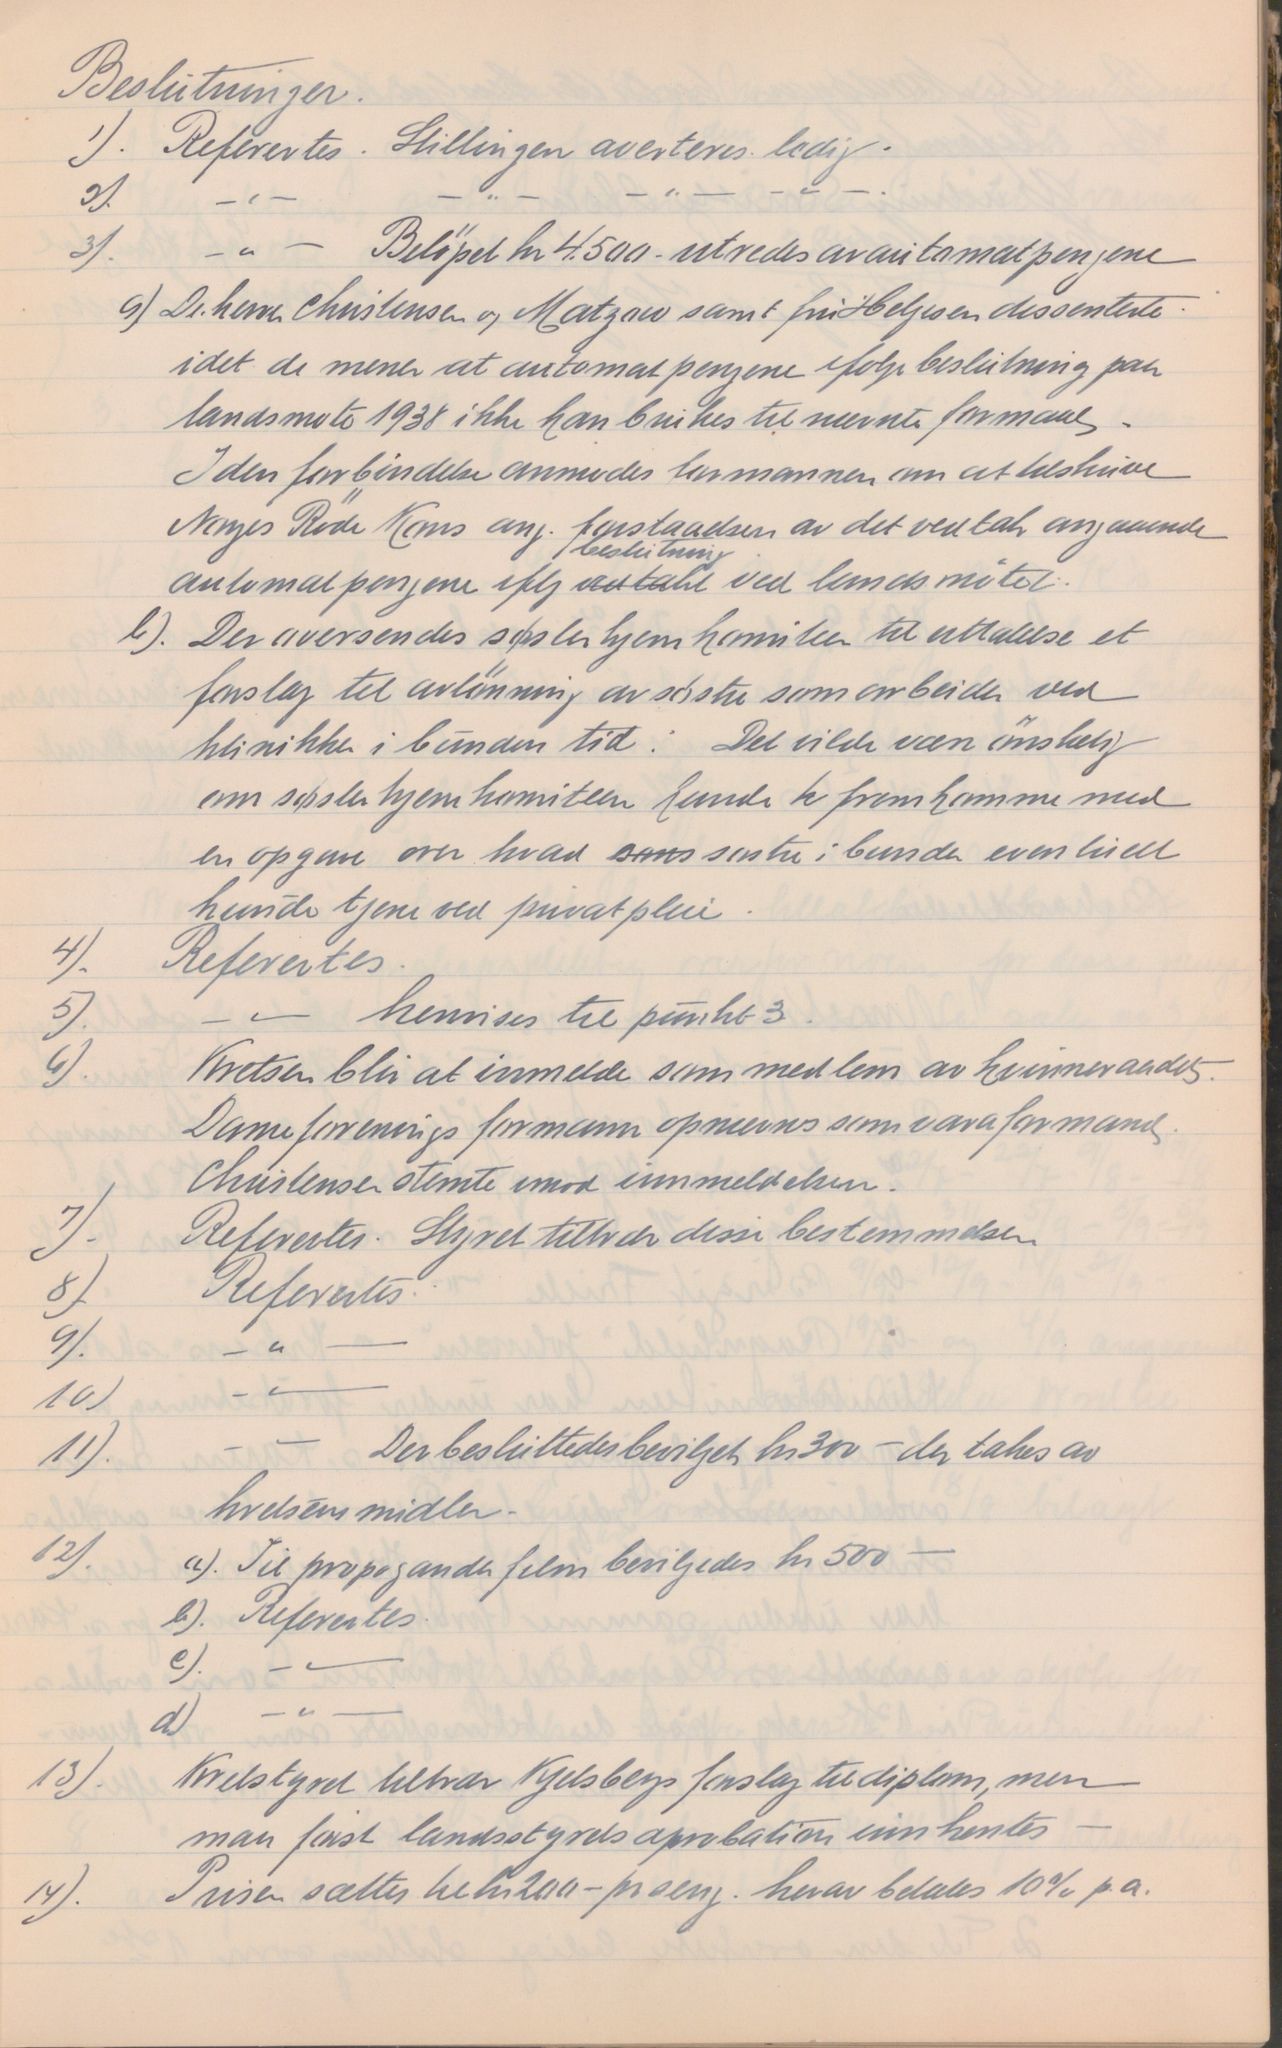 Beslutninger.
1). Refereertes. Stillingen averteres ledig.
2). —"— —"— —"— —"—.
3). —"— Beløpet kr 4.500.- utredes av automatpengene
a) De herrer Christensen og Matzow samt fru Helgesen dissenterte
idet de mener at automatpengene ifølge beslutning paa
landsmøte 1938 ikke kan brukes til nævnte formaal.
I den forbindelse anmodes formannen om at tilskrive
Norges Røde Kors ang. forstaaelsen av det vedtak angaaende
beslutning
automatpengene iflg vedtakt ved landsmötet.
b). Der oversendes søsterhjemkomiteen til uttalelse et
forslag til avlönning av søstre som arbeider ved
klinikker i bunden tid. Det vilde være önskelig
om søsterhjemkomiteen kunde fremkomme med
en opgave over hvad søstre i bunden eventuelt
kunde tjene ved privatpleie.
4). Refereertes.
5). —"— henvises til punkt 3.
6). Kretsen blir at innmelde som medlem av kvinneraadet.
Dameforenings formann opnævnes som varaformand.
Christensen stemte imod innmeldelsen.
7). Refereertes. Styret tiltrær disse bestemmelsen
8). Refereertes.
9). —"—
10) —"—
11). —"— Der besluttedes bevilget kr 300 — der takes av
kretsens midler.
12). a). Til propagande film beviljedes kr 500 —
b). Refereertes.
c). —"—
d) —"—
13). Kretsstyret tiltrær Kjelsbergs forslag til diplom, men
man först landsstyrets aprobation innhentes —
14). Prisen sættes til kr 200 — pr seng. herav betales 10% p.a.